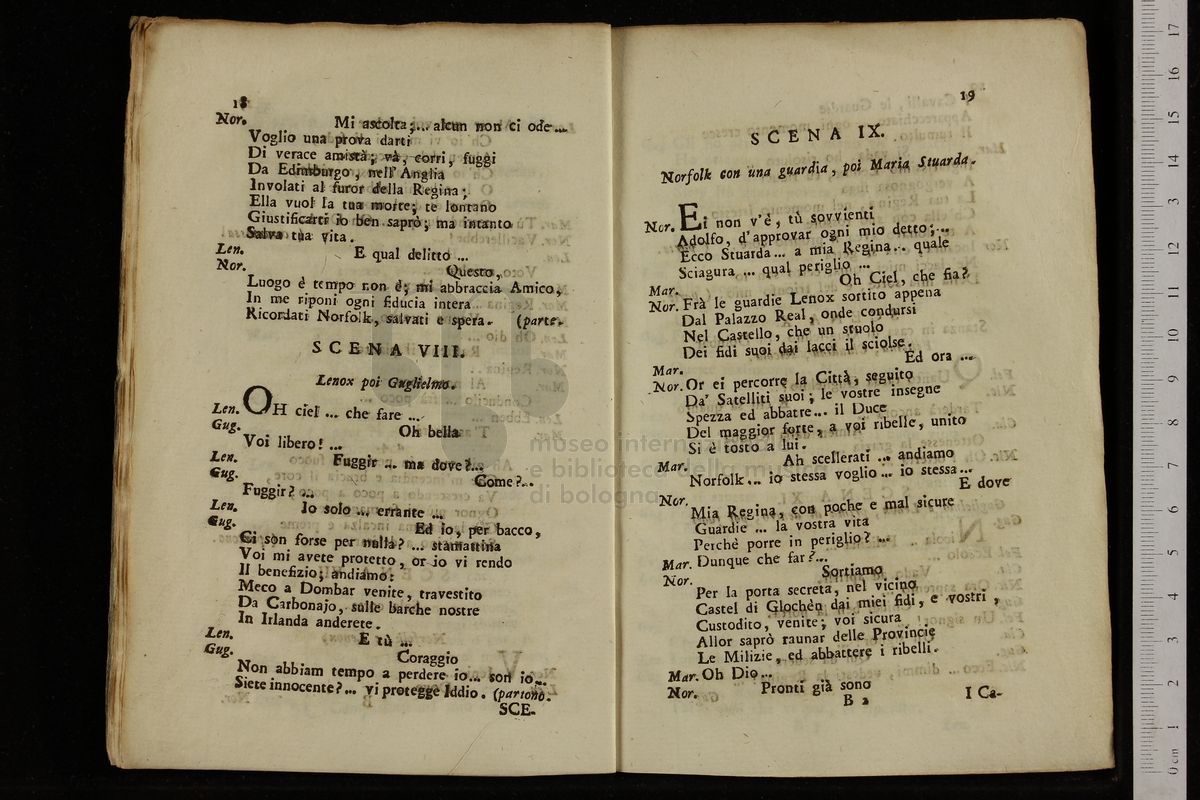 18
Nor. Mi ascolta;... alcun non ci ode...
Voglio una prova darti
Di verace amistà; và, corri, fuggi
Da Edimburgo, nell' Anglia
Involati al furor della Regina;
Ella vuol la tua morte; te lontano
Giustificarti io ben saprò; ma intanto
Salva tua vita.
Len. E qual delitto ...
Nor. Questo,
Luogo è tempo non è; mi abbraccia Amico,
In me riponi ogni fiducia intera
Ricordati Norfolk, salvati e spera. (parte.
SCENA VIII.
Lenox poi Guglielmo.
Len. OH ciel ... che fare ...
Gug. Oh bella
Voi libero! ...
Len. Fuggir ... ma dove?...
Gug. Come?...
Fuggir? ...
Len. Io solo ... errante ...
Gug. Ed io, per bacco,
Ci son forse per nulla? ... stamattina
Voi mi avete protetto, or io vi rendo
Il benefizio; andiamo:
Meco a Dombar venite, travestito
Da Carbonajo, sulle barche nostre
In Irlanda anderete.
Len. E tù ...
Gug. Coraggio
Non abbiam tempo a perdere io... son io...
Siete innocente?... vi protegge Iddio. (partono.
SCE-
19
SCENA IX.
Norfolk con una guardia, poi Maria Stuarda.
Nor. Ei non v'è, tù sovvienti
Adolfo, d'approvar ogni mio detto;...
Ecco Stuarda... a mia Regina... quale
Sciagura ... qual periglio ...
Mar. Oh Ciel, che fia?
Nor. Frà le guardie Lenox sortito appena
Dal Palazzo Real, onde condursi
Nel Castello, che un stuolo
Dei fidi suoi dai lacci il sciolse.
Mar. Ed ora ...
Nor. Or ei percorre la Città, seguito
Da' Satelliti suoi; le vostre insegne
Spezza ed abbatte... il Duce
Del maggior forte, a voi ribelle, unito
Si è tosto a lui.
Mar. Ah scellerati ... andiamo
Norfolk... io stessa voglio... io stessa...
Nor. E dove
Mia Regina, con poche e mal sicure
Guardie ... la vostra vita
Perchè porre in periglio? ...
Mar. Dunque che far?...
Nor. Sortiamo
Per la porta secreta, nel vicino
Castel di Glochèn dai miei fidi, e vostri,
Custodito, venite; voi sicura
Allor saprò raunar delle Provincie
Le Milizie, ed abbattere i ribelli.
Mar. Oh Dio...
Nor. Pronti già sono
B 2
I Ca-
museo internazionale
e biblioteca della musica
di bologna
0 cm 1 2 3 4 5 6 7 8 9 10 11 12 13 14 15 16 17